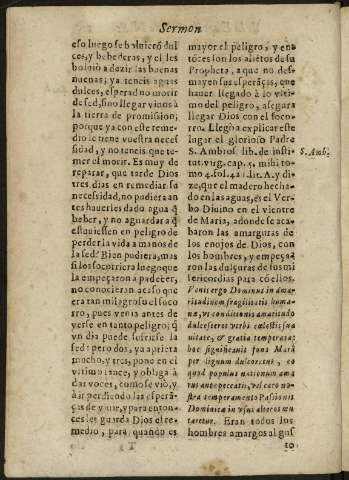 Sermon
eso luego se bolvieró dul
ces, y bebederas, y el les
boluio a dezir las buenas
nuevas: ya teneis aguas
dulces, esperad no morir
de sed, sino llegar vivos à
la tierra de promission;
porque ya con este reme-
dio se tiene vuestra neces
sidad, y no teneis que te-
mer el morir. Es muy de
reparar, que tarde Dios
tres dias en remediar su
necessidad, no pudiera an
tes haverles dado agua q̃
beber, y no aguardar a q̃
estuuiessen en peligro de
perder la vida a manos de
la sed? Bien pudiera, mas
si los socorriera luego que
la empeçaron a padecer,
no conocieran acaso que
era tan milagroso el soco
rro, pues venia antes de
verse en tanto peligro; q̃
vn dia puede sufrirse la
sed: pero dos, ya aprieta
mucho, y tres, pone en el
vltimo lance, y obliga à
dar voces, como se viò, y
à ir perdiendo las esperã-
ças de viuir, y para enton-
ces les guarda Dios el re-
medio, para quando es
mayor el peligro, y en-
tõces son los aliẽtos de su
Propheta, a que no des-
mayen sus esperãças, que
hauer llegado à lo vlti-
mo del peligro, asegura
llegar Dios con el soco-
rro. Llegòa explicar este
lugar el glorioso Padre
S. Ambros. lib. de insti-
tut. virg. cap. 5. mihi to-
mo 4. fol. 421. lit. A. y di-
ze, que el madero hecha-
do en las aguas, es el Ver-
bo Diuino en el vientre
de Maria, adonde se aca-
baron las amarguras de
los enojos de Dios, con
los hombres, y empeça-
ron las dulçuras de sus mi
sericordias para cõ ellos.
Venit ergo Dominus in ama-
ritudinem fragilitatis huma-
næ, vt conditionis amaritudo
dulcesceret verbi cælestis sua
uitate, & gratia temperata;
hoc significauit fons Mara
per lignum dulcorens, eo
quod populus nationum ama
rus ante peccatis, vel caro no-
stra temperamento Passionis
Dominicæ in vsus alteros mu
taretur. Eran todos los
hombres amargos al gus
S. Amb.
to